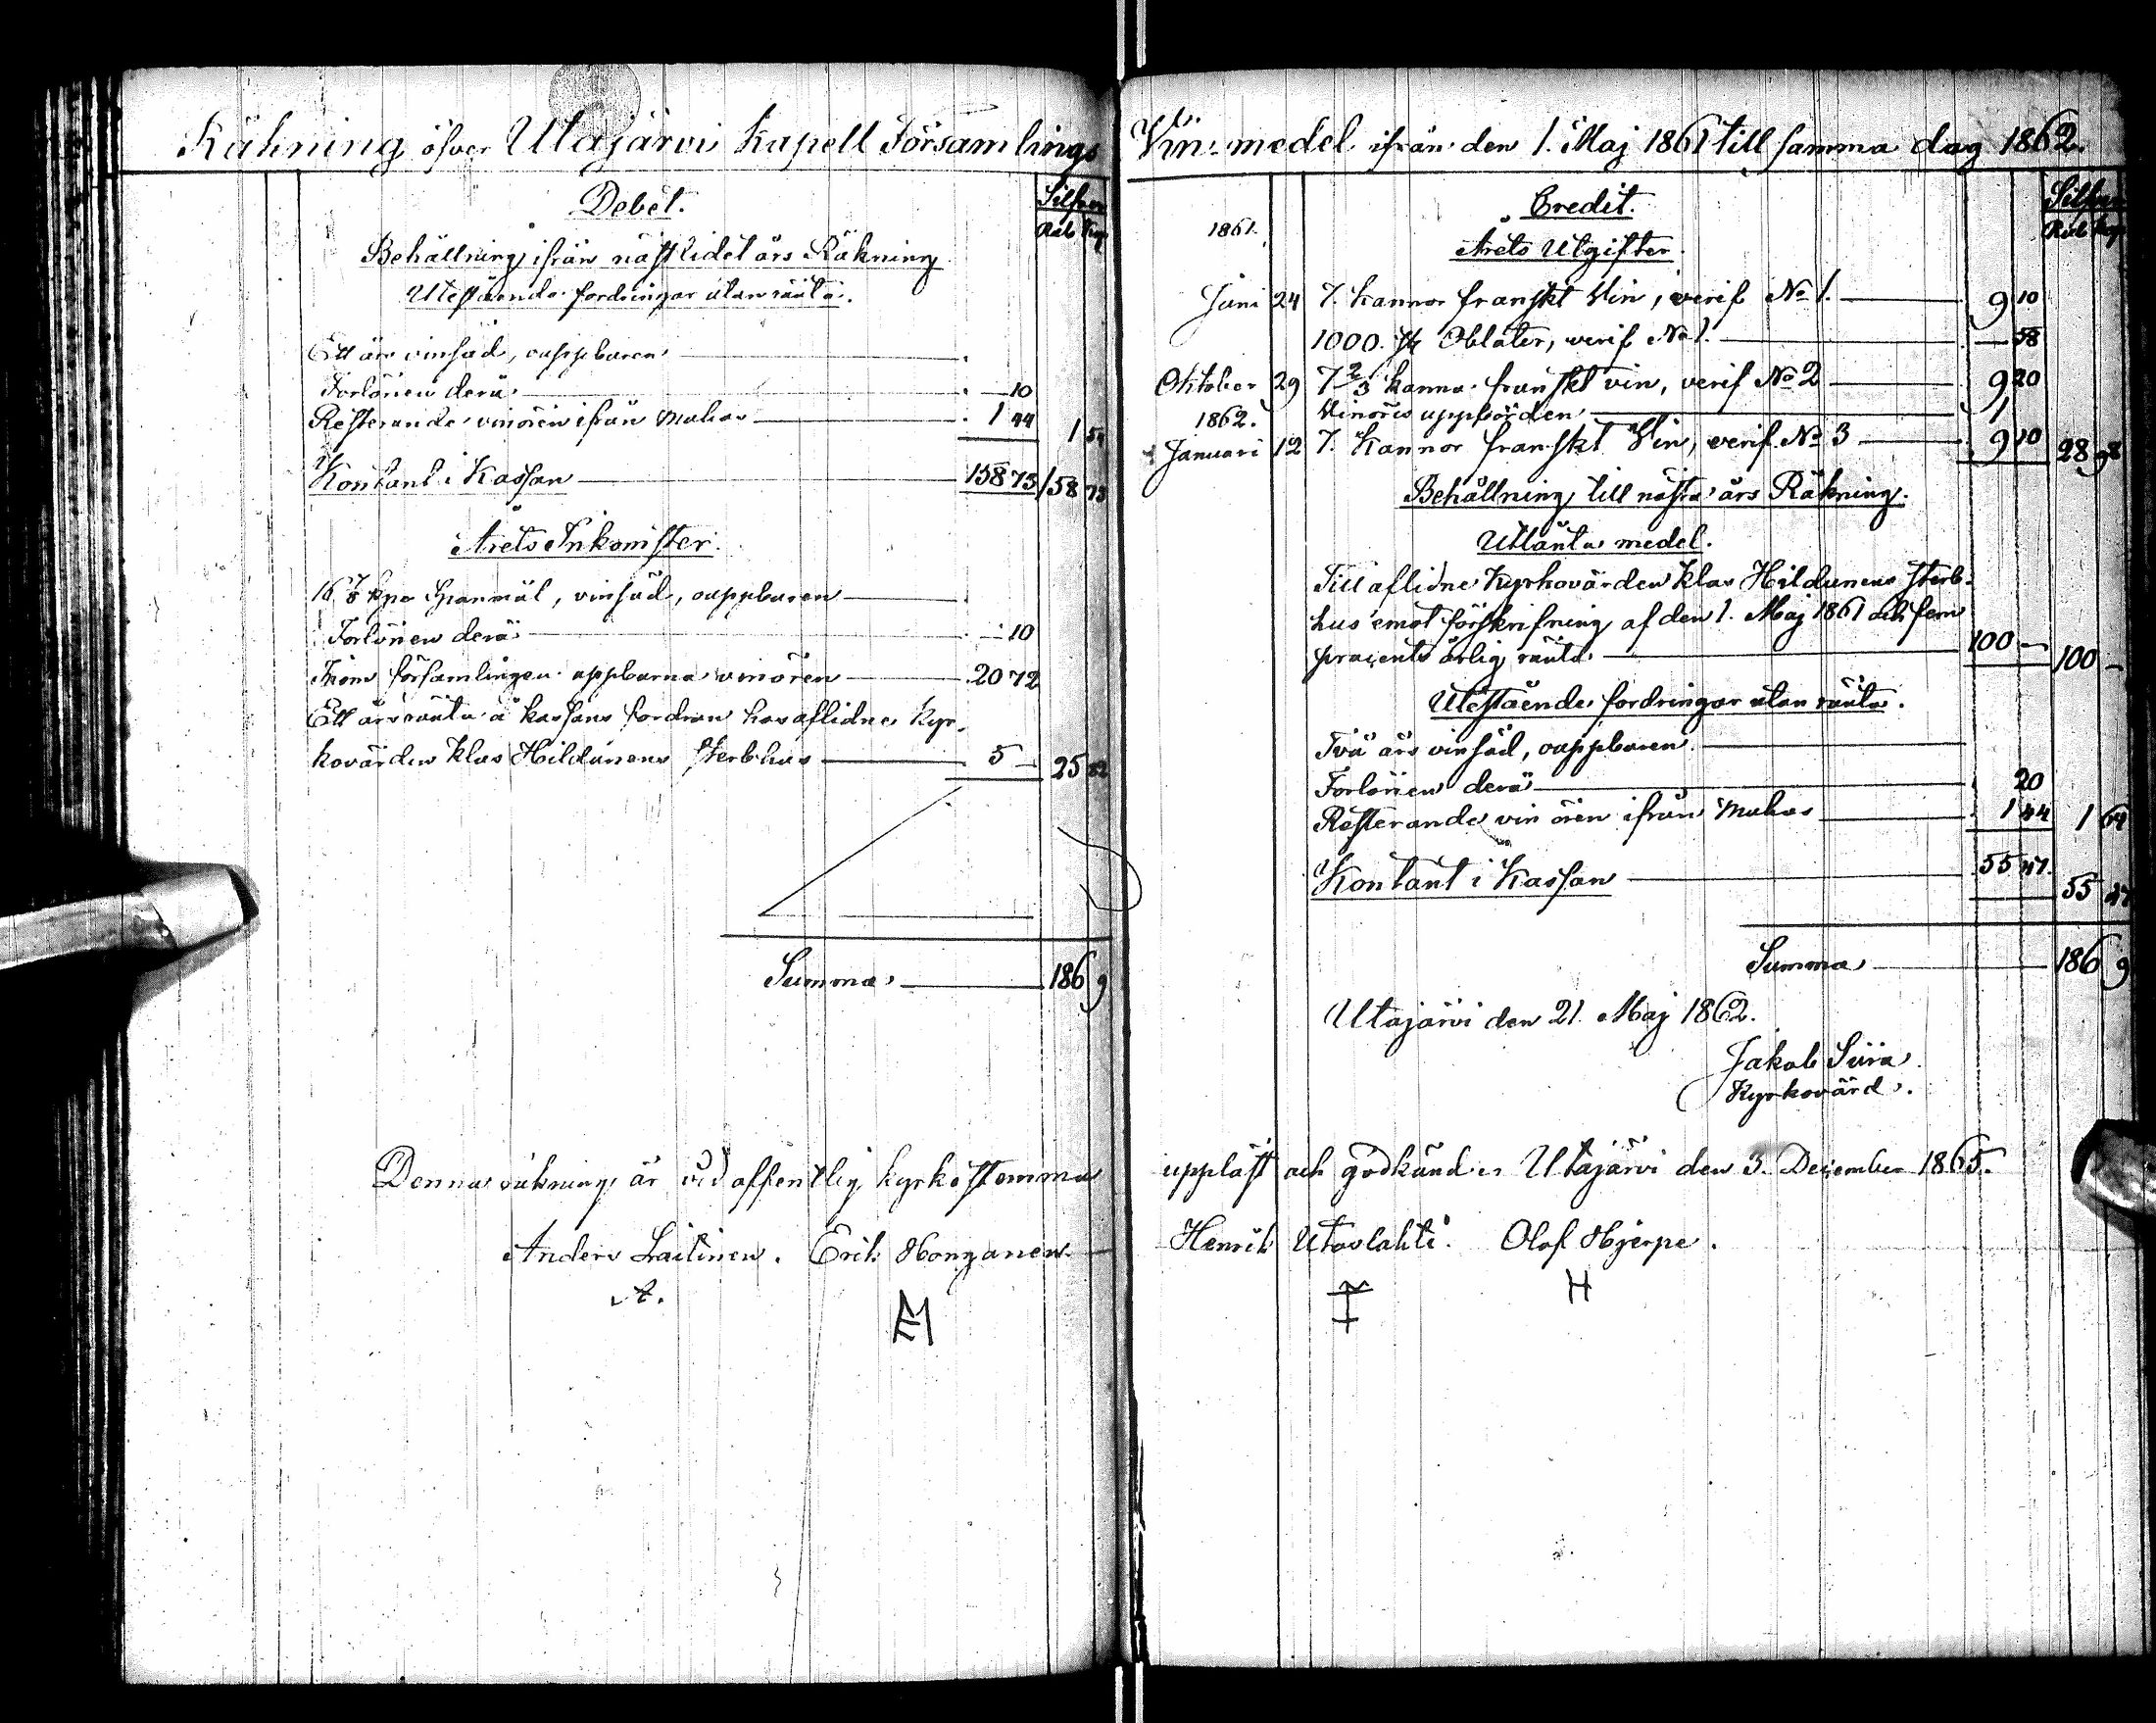 Räkning öfver Utajärvi Kapell Församlings
Debet.
Silfver
Rub Kop
Behållning ifrån nästlidet års Räkning
Utestående fordringar utan ränta.
Ett års vinsäd, ouppburen
Forlönen derå — 10
Resterande vinören ifrån Muhos 1 44 1 54
Kontant i Kassan 158 73 158 73
Årets Inkomster.
16 7/8 Kpr Spanmål, vinsäd, ouppburen
Forlönen derå — 10
Från församlingen uppburna vinören 20 72
Ett års ränta å kassans fordran hos aflidne Kyr-
kovärden Klas Hildunens sterbhus 5 — 25 82
Summa 186 9
Denna räkning är vid offentlig kyrkostemma
Anders Laitinen. Erik Honganen
A.
Vin-medel ifrån den 1. Maj 1861 till samma dag 1862.
Credit.
Silfver
Rub Kop
1861.
Årets Utgifter.
Juni 24 7. Kannor franskt Vin, verif No 1. 9 10
1000. st Oblater, verif No 1. — 58
Oktober 29 7 2/3 kanna franskt vin, verif No 2 9 20
1862. Vinöres uppbörden 1
Januari 12 7. Kannor franskt Vin, verif. No 3 9 10 28 98
Behållning till nästa års Räkning.
Utlånta medel.
Till aflidne Kyrkovärden Klas Hildunens sterb-
hus emot förskrifning af den 1. Maj 1861 och fem
procents årlig ränta 100 — 100 —
Utestående fordringar utan ränta.
Två års vinsäd, ouppburen
Forlönen derå 20
Resterande vin ören ifrån Muhos 1 44 1 64
Kontant i Kassan 55 47. 55 47
Summa 186 9
Utajärvi den 21. Maj 1862.
Jakob Siira
Kyrkovärd.
uppläst och godkänd i Utajärvi den 3. December 1865.
Henrik Utoslahti. Olof Hjerpe.
H